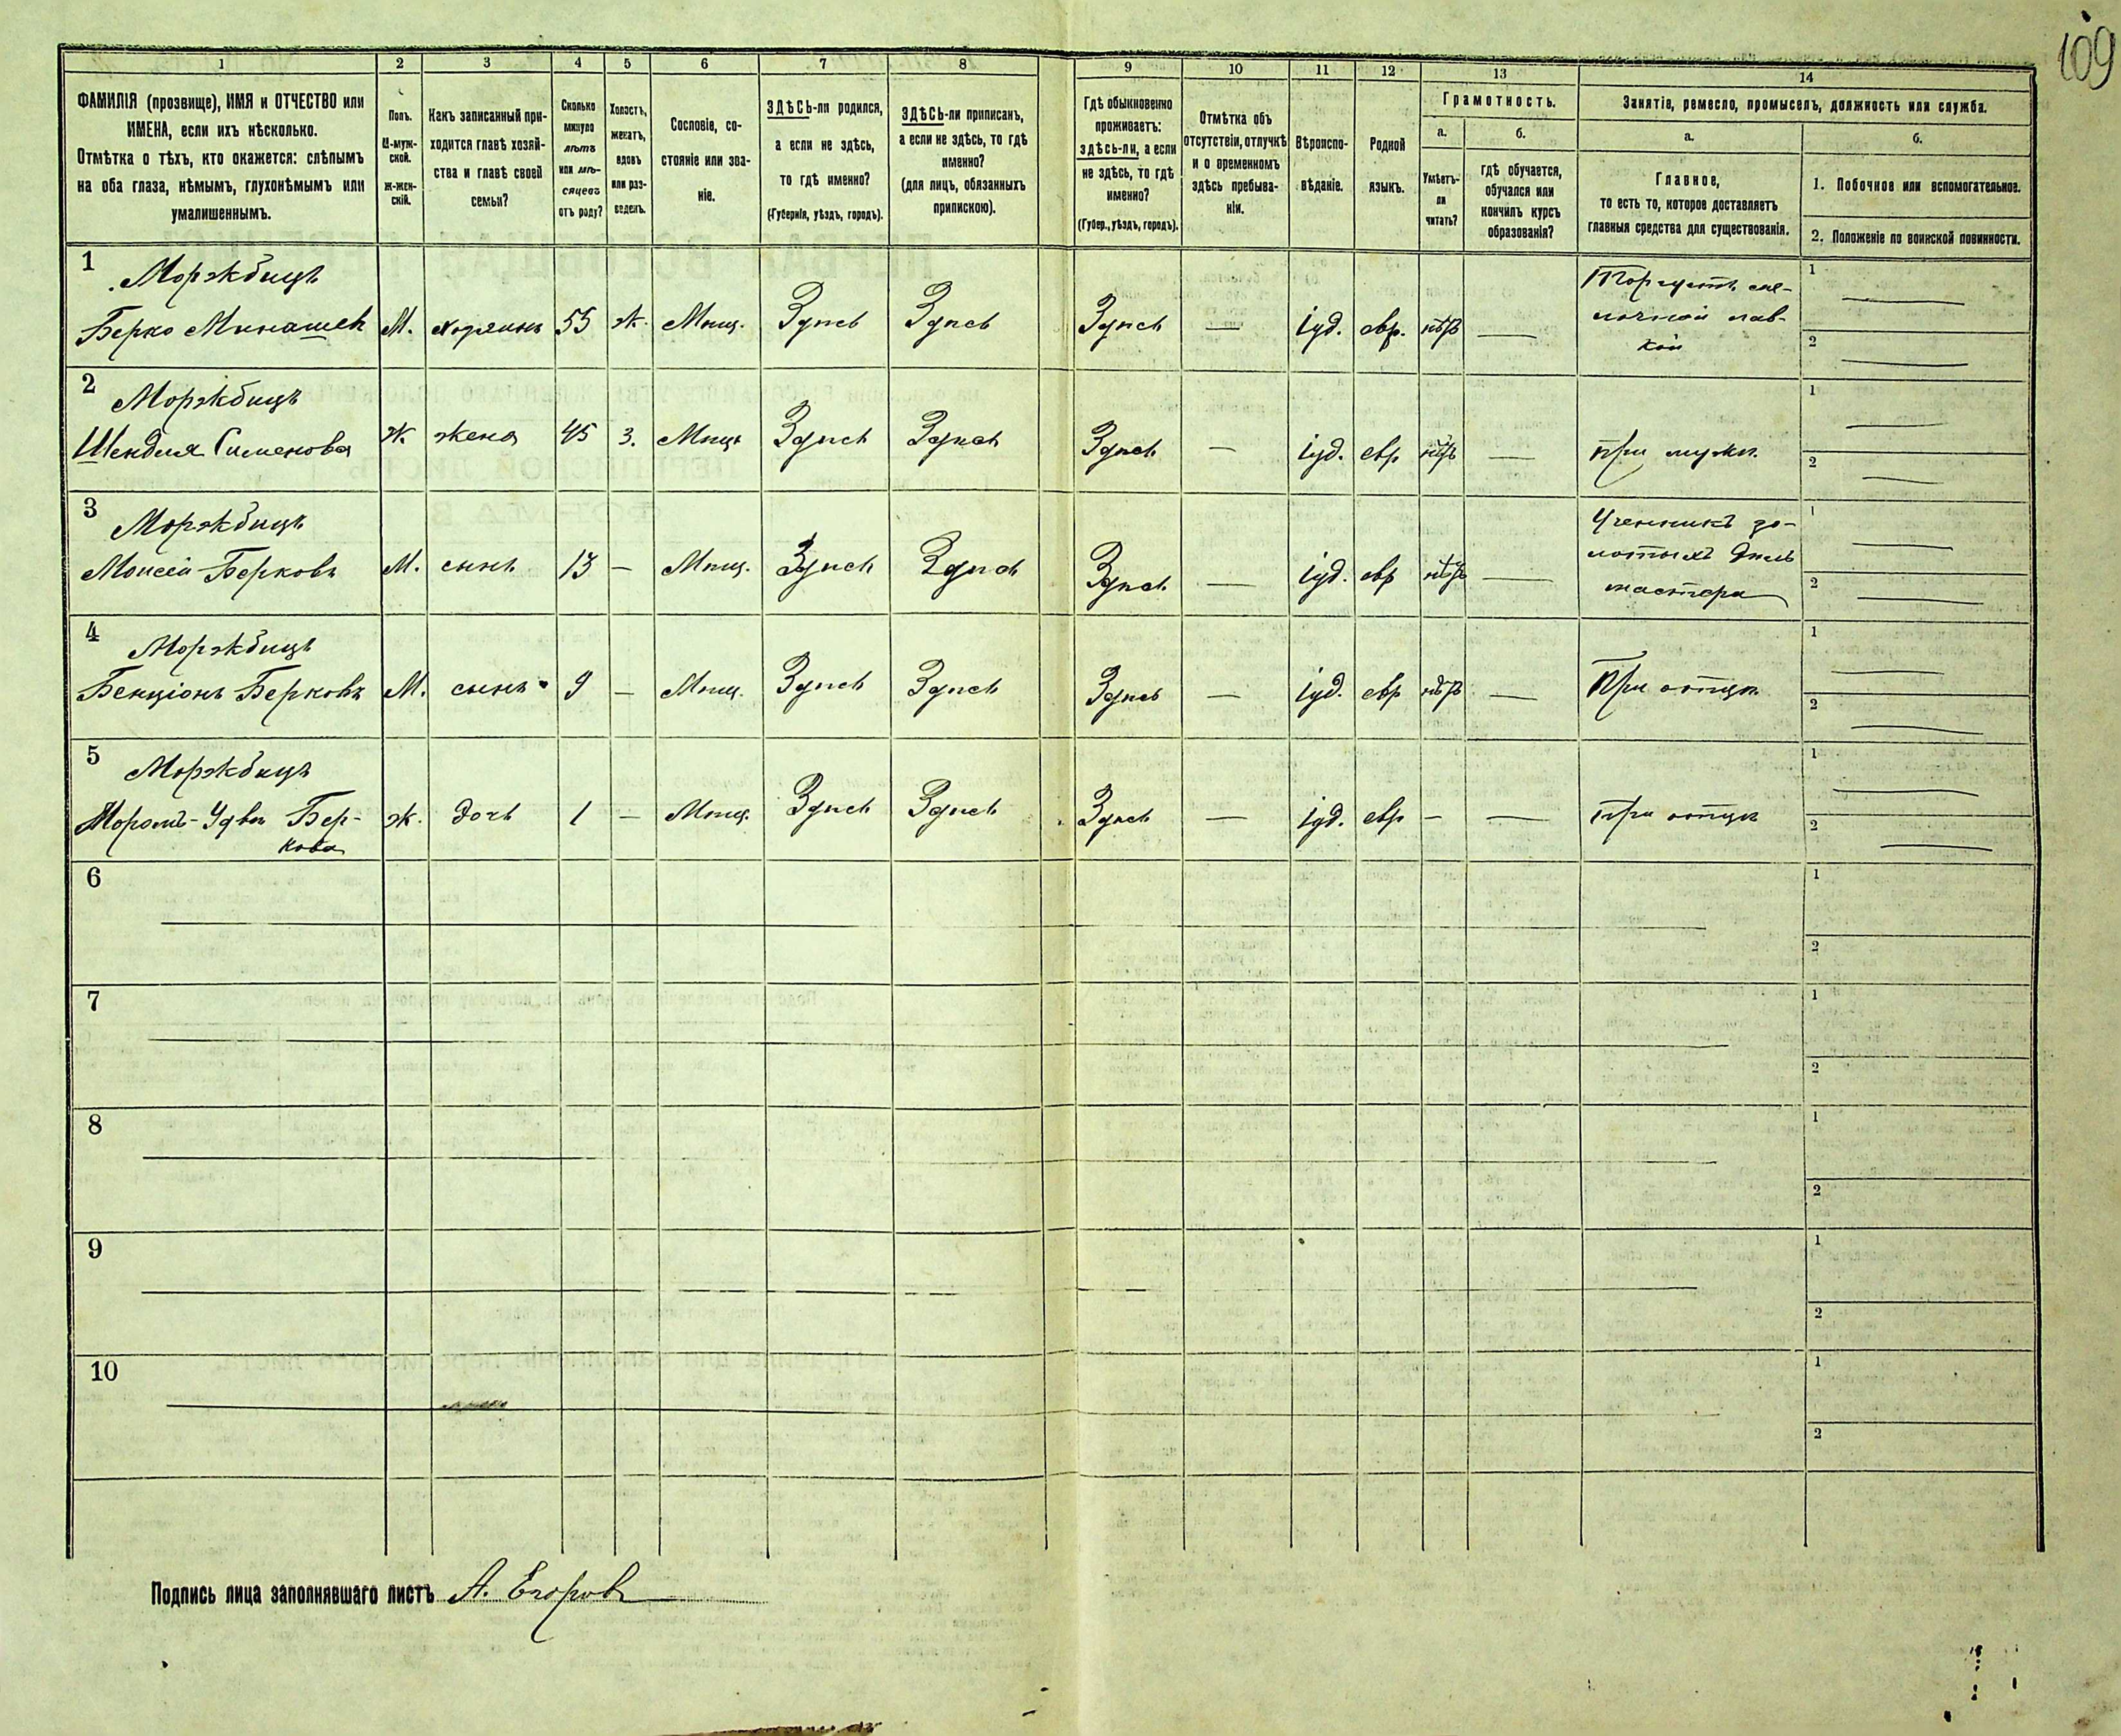 109
1 2 3 4 5 6 7 8 9 10 11 12 13 14
ФАМИЛІЯ (прозвище), ИМЯ и ОТЧЕСТВО или
ИМЕНА, если ихъ нѣсколько.
Отмѣтка о тѣхъ, кто окажется: слѣпымъ
на оба глаза, нѣмымъ, глухонѣмымъ или
умалишеннымъ.
Полъ.
М-муж-
ской.
Ж-жен-
скій.
Какъ записанный при-
ходится главѣ хозяй-
ства и главѣ своей
семьи?
Сколько
минуло
лѣтъ
или мѣ-
сяцевъ
отъ роду?
Холостъ,
женатъ,
вдовъ
или раз-
веденъ.
Сословіе, со-
стояніе или зва-
ніе.
ЗДѢСЬ-ли родился,
а если не здѣсь,
то гдѣ именно?
(Губернія, уѣздъ, городъ).
ЗДѢСЬ-ли приписан,
а если не здѣсь, то гдѣ
именно?
(для лицъ, обязанныхъ
припискою).
Гдѣ обыкновенно
проживаетъ:
здѣсь-ли, а если
не здѣсь, то гдѣ
именно?
(Губер., уѣздъ, городъ).
Отмѣтка объ
отсутствіи, отлучкѣ
и о временномъ
здѣсь пребыва-
ніи.
Вѣроиспо-
вѣданіе.
Родной
языкъ.
Грамотность.
а.
Умѣетъ-
ли
читать?
б.
гдѣ обучается,
обучался или
кончилъ курсъ
образованія?
Занятіе, ремесло, промыселъ, должность или служба.
а.
Главное,
то есть то, которое доставляетъ
главныя средства для существованія.
б.
1. Побочное или вспомогательное.
2. Положеніе по воинской повинности.
1
Моржбицъ
Берко Минашев М. хозяинъ 55 ж. Мѣщ. Здѣсь Здѣсь Здѣсь — іуд. евр. нѣтъ —
Торгуетъ ме-
лочной лав-
кой
1
2
2
Моржбицъ
Шендля Сименова Ж. жена 45 З. Мѣщ Здѣсь Здѣсь Здѣсь — іуд. евр нѣтъ — при мужѣ
1
2
3
Моржбицъ
Моисей Берковъ М. сынъ 13 — Мѣщ. Здѣсь Здѣсь Здѣсь — іуд. евр нѣтъ —
Ученикъ зо-
лотыхъ дѣлъ
мастера
1
2
4
Моржбицъ
Бенціонъ Берковъ М. сынъ 9 — Мѣщ. Здѣсь Здѣсь Здѣсь — іуд. евр нѣтъ — При отцѣ
1
2
5
Моржбицъ
Бер-
кова
ж. дочь 1 — Мѣщ. Здѣсь Здѣсь Здѣсь — іуд. евр — — при отцѣ
1
2
6
1
2
7
1
2
8
1
2
9
1
2
10
1
2
Подпись лица заполнявшаго листъ А. Егоровъ